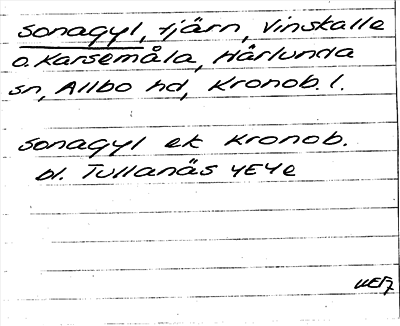 Sonagyl, tjärn, Vinskalle
o. Karsemåla, Härlunda
sn, Allbo hd, Kronob. l.
Sonagyl ek Kronob.
bl. Tullanäs 4E4e